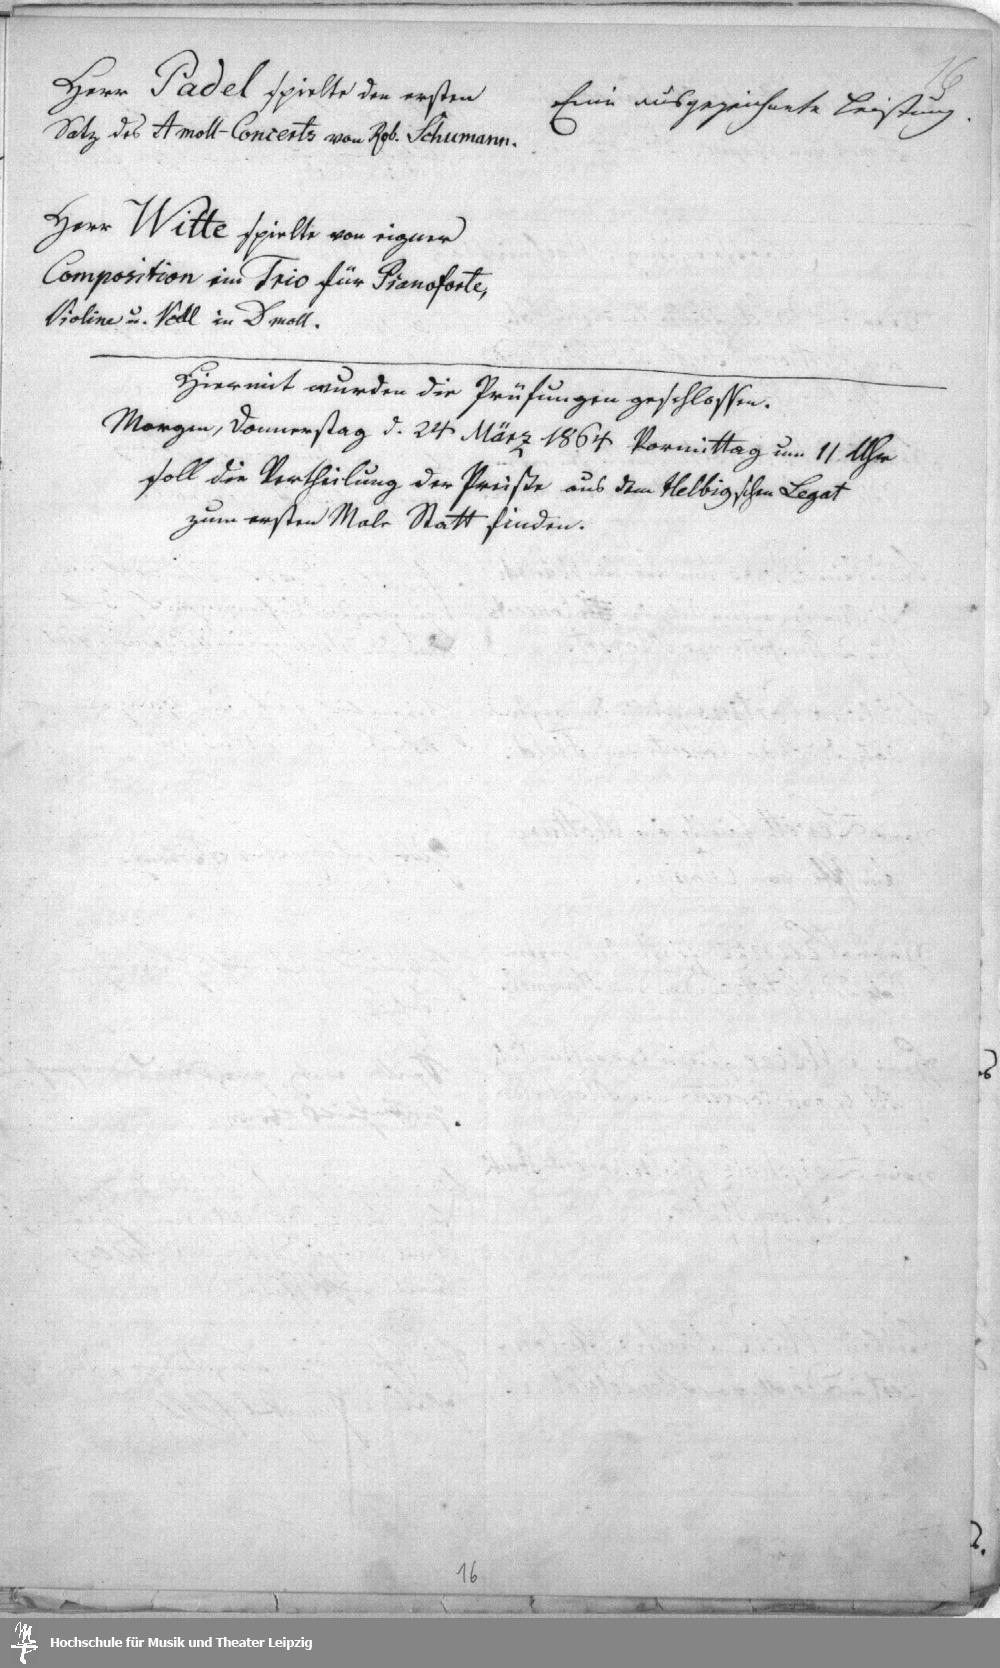 16
Herr Padel spielte den ersten
Satz des A moll-Concerts von Rob. Schumann.
Eine ausgezeichnete Leistung.
Herr Witte spielte von eigner
Composition ein Trio für Pianoforte,
Violine u. Vcell in D moll.
Hiermit wurden die Prüfungen geschlossen.
Morgen, Donnerstag d. 24 März 1864 Vormittag um 11 Uhr
soll die Vertheilung der Preiße aus dem Helbigschen Legat
zum ersten Male Statt finden.
16
Hochschule für Musik und Theater Leipzig